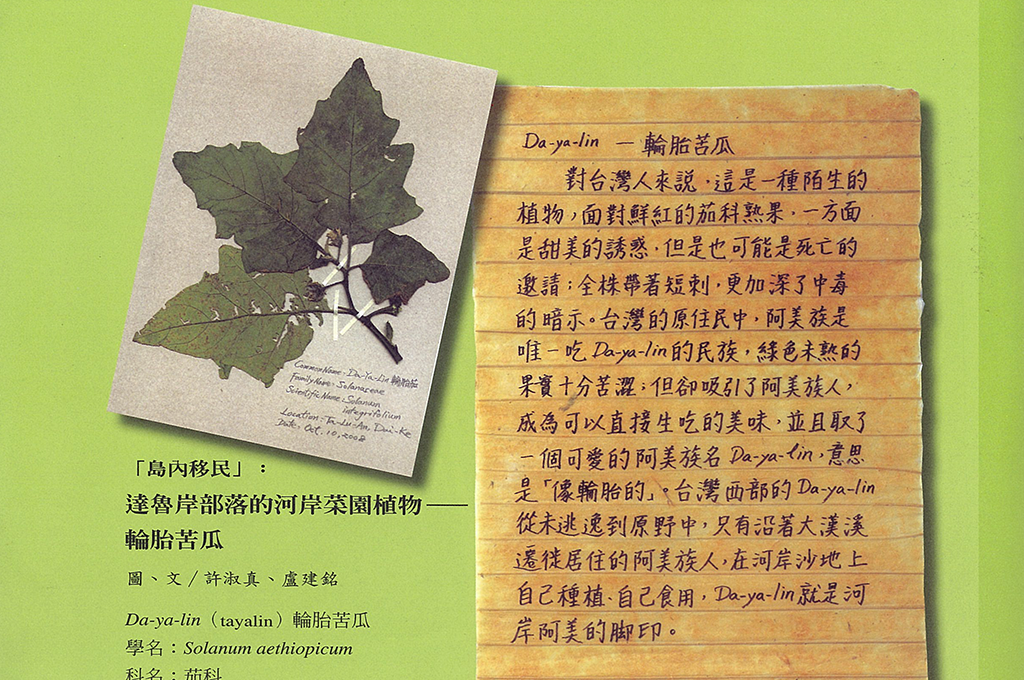 Common Name: Da-Ya-Lin 輪胎茄
Family Name: Solanaceae
Scientific Name: Solanum
integrifolium
Location: Ta-Lu-An, Dai-Ke
Date: Oct. 10, 2008
「島內移民」：
達魯岸部落的河岸菜園植物——
輪胎苦瓜
圖、文／許淑真、盧建銘
Da-ya-lin（tayalin）輪胎苦瓜
學名：Solanum aethiopicum
科名：茄科
Da-ya-lin —輪胎苦瓜
對台灣人來說，這是一種陌生的
植物，面對鮮紅的茄科熟果，一方面
是甜美的誘惑，但是也可能是死亡的
邀請；全株帶著短刺，更加深了中毒
的暗示。台灣的原住民中，阿美族是
唯一吃Da-ya-lin的民族，綠色未熟的
果實十分苦澀；但卻吸引了阿美族人，
成為可以直接生吃的美味，並且取了
一個可愛的阿美族名Da-ya-lin，意思
是「像輪胎的」。台灣西部的Da-ya-lin
從未逃逸到原野中，只有沿著大漢溪
遷徙居住的阿美族人，在河岸沙地上
自己種植、自己食用，Da-ya-lin就是河
岸阿美的腳印。